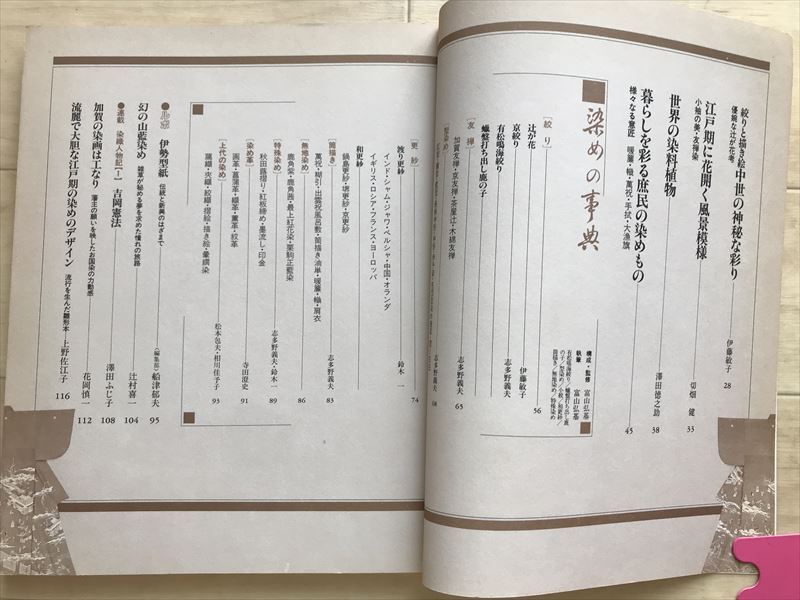 絞りと描き絵 中世の神秘な彩り
優婉な辻が花考
伊藤敏子 28
江戸期に花開く風景模様
小袖の美・友禅染
切畑 健 33
世界の染料植物
澤田徳之助 38
暮らしを彩る庶民の染めもの
様々なる意匠 暖簾・幟・萬祝・手拭・大漁旗
45
染めの事典
構成・監修 富山弘基
執筆 富山弘基
有松鳴海絞り／蠟盤打ち出し鹿
の子／型染め／小紋／和更紗／
筒描き／無地染め／特殊染め
56
［絞り］
辻が花
伊藤敏子
京絞り
有松鳴海絞り
蠟盤打ち出し鹿の子
志多野義夫
［友禅］
加賀友禅・京友禅・茶屋辻・木綿友禅
志多野義夫 65
［型染め］
志多野義夫
［更紗］
渡り更紗
インド・シャム・ジャワ・ペルシャ・中国・オランダ
イギリス・ロシア・フランス・ヨーロッパ
鈴木 一 74
和更紗
鍋島更紗・堺更紗・京更紗
志多野義夫
［筒描き］
萬祝・糊引・出雲祝風呂敷・筒描き油単・暖簾・幟・肩衣
83
［無地染め］
鹿角紫・鹿角茜・最上紅花染・栗駒正藍染
86
［特殊染め］
秋田蕗摺り・紅板締め・墨流し・印金
志多野義夫・鈴木一 89
［染め革］
画革・菖蒲革・纈革・薫革・紋革
寺田澄史 91
［上代の染め］
﨟纈・夾纈・絞纈・摺絵・描き絵・暈繝染
松本包夫・相川佳予子 93
●ルポ 伊勢型紙 伝統と新興のはざまで
〈編集部〉船津郁夫 95
幻の山藍染め 謎草が秘める夢を求めた憧れの旅路
辻村喜一 104
●連載 染織人物記［1］ 吉岡憲法
澤田ふじ子 108
加賀の染画は工なり 藩主の願いを映したお国染の力動感
花岡慎一 112
流麗で大胆な江戸期の染めのデザイン 流行を生んだ雛形本
上野佐江子 116